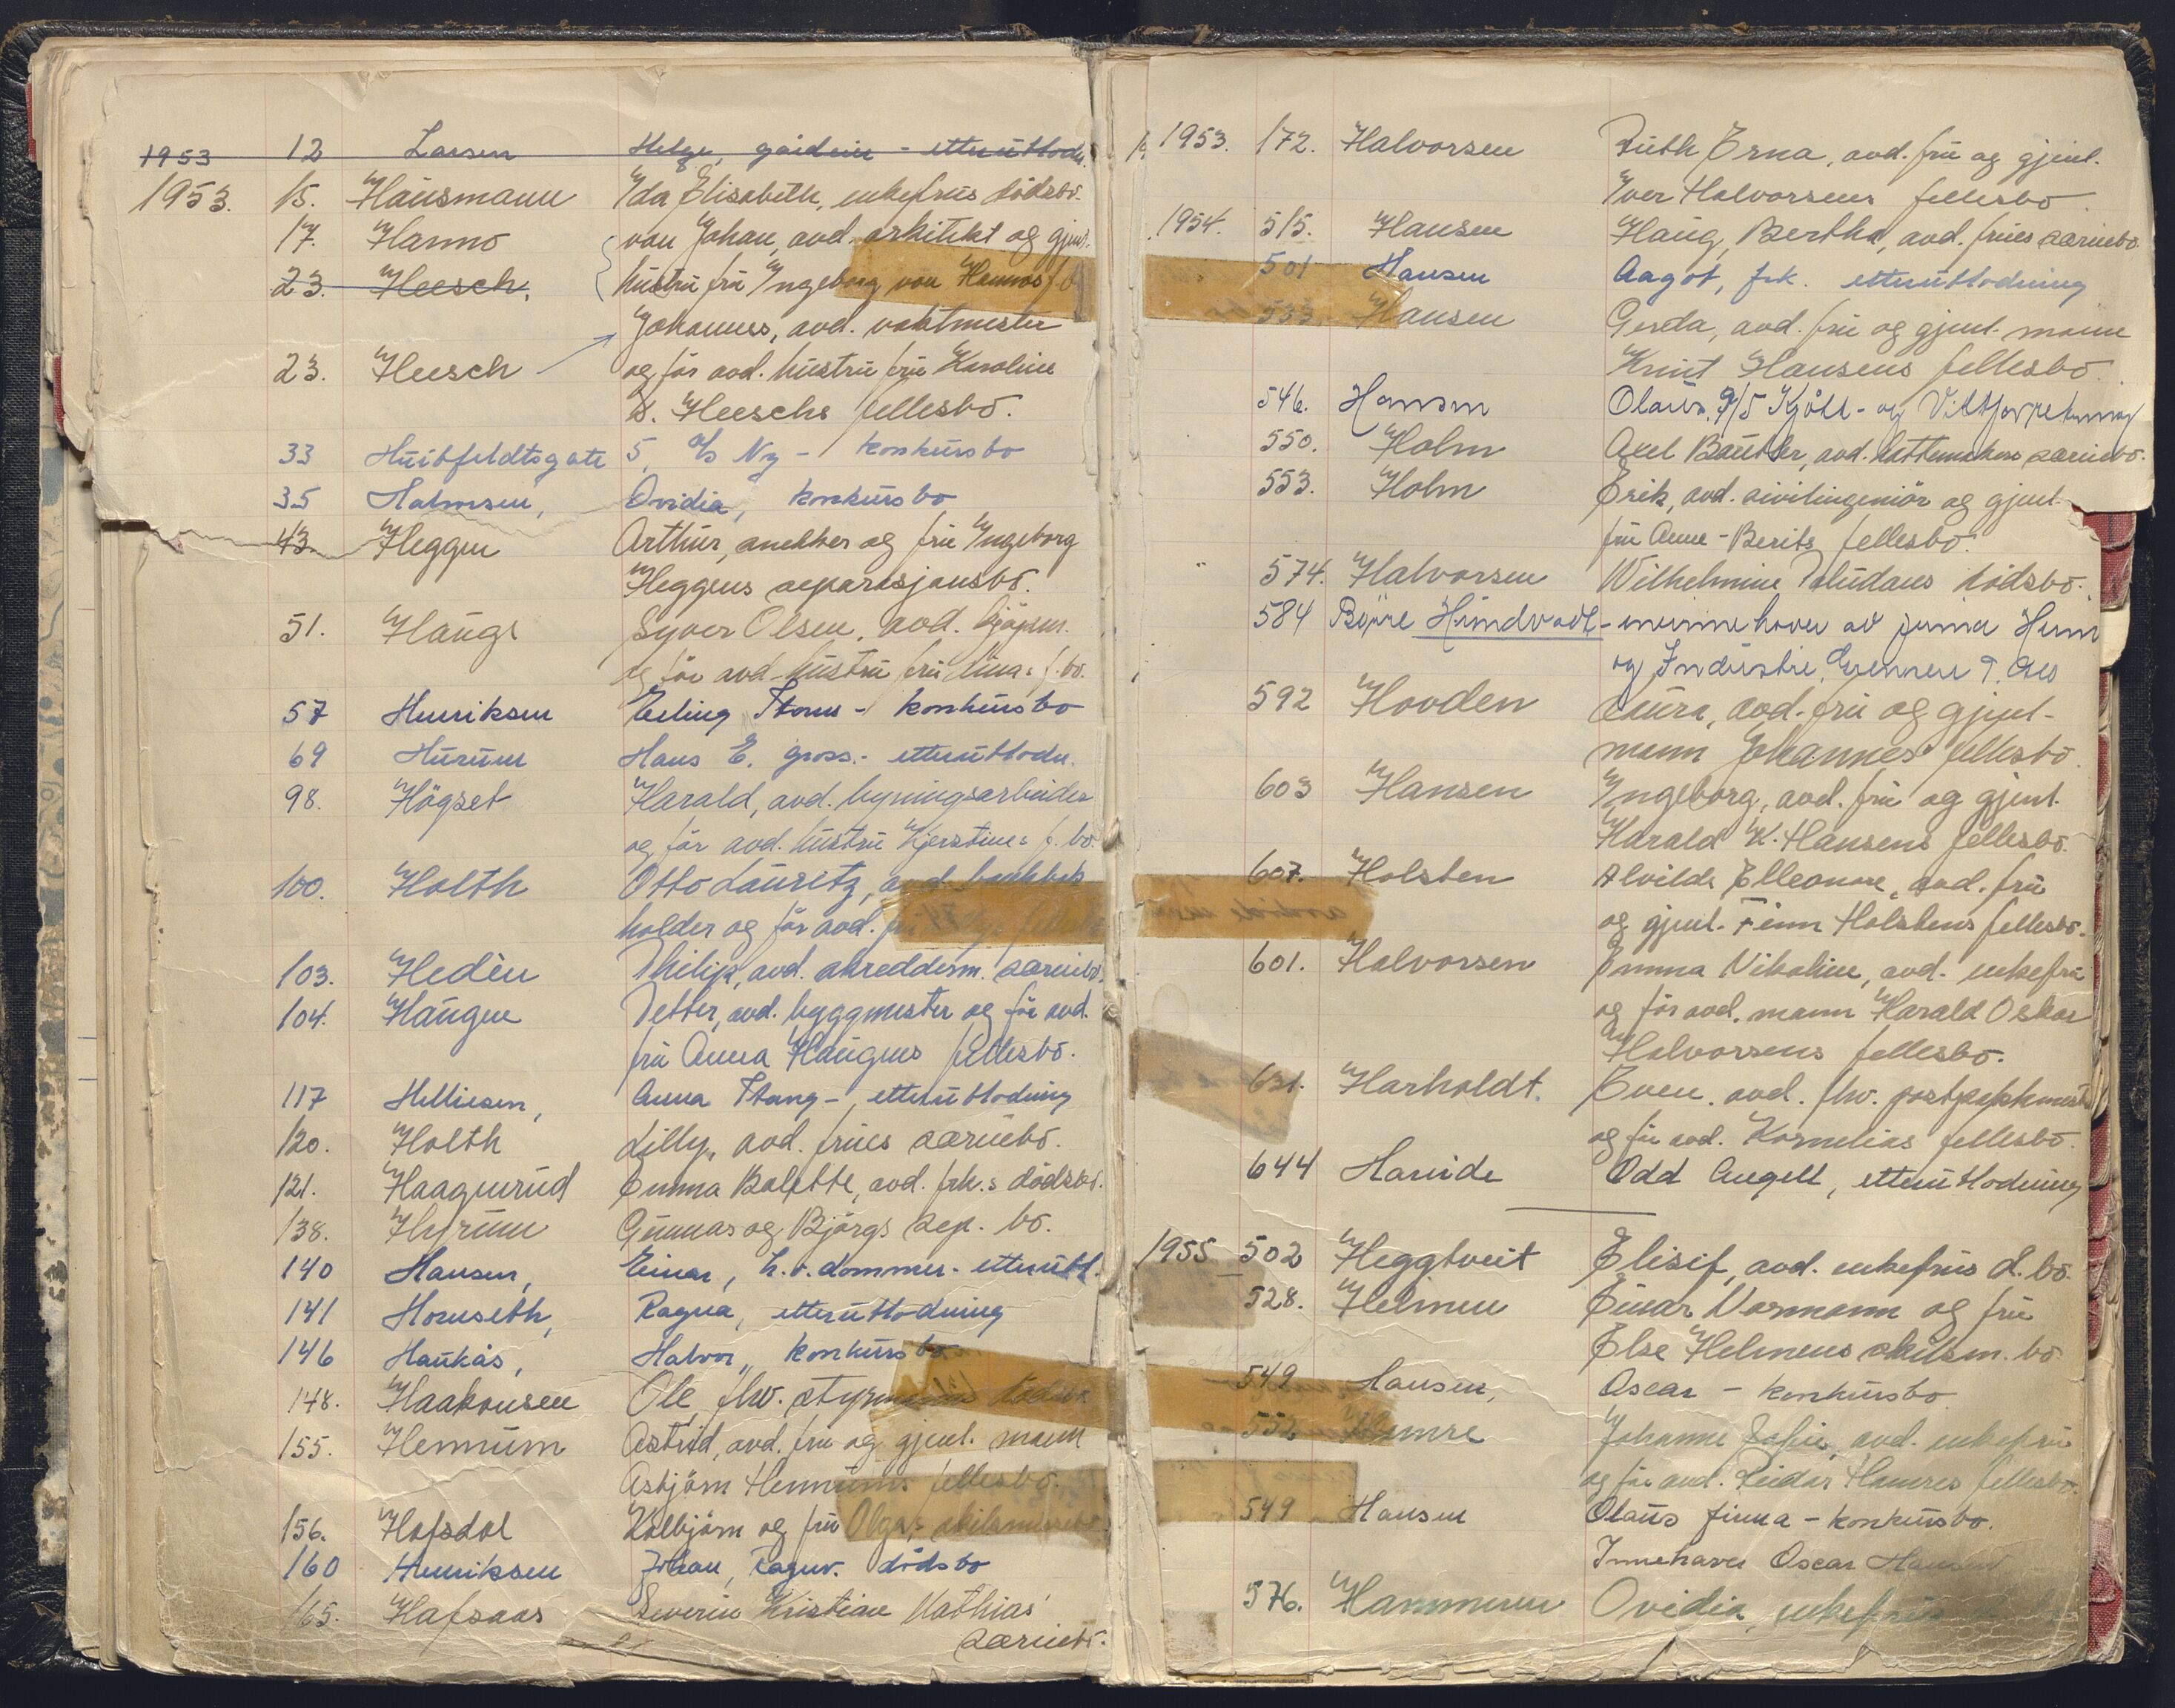 1953 12 Larsen Helge, - etterutlodn.
1953. 15. Hausmann Ida Elisabeth, enkefrus dödsbo.
17. Hanno von Johan, avd. arkitekt og gjenl.
23. Heesch, hustru fru Ingeborg von Hannos f.bo
Johannes, avd. vaktmester
23. Heesch og för avd. hustru fru Karoline
Heeschs fellesbo.
33 Huitfeldtsgate 5, A/S Ny - konkursbo
35 Halvorsen, Ovidia, konkursbo
43. Heggen Arthur, snekker og fru Ingeborg
Heggens separasjonsbo.
51. Haugs Syver Olsen, avd. kjöpm.
og för avd. hustru fru Linas f. bo.
57 Henriksen Erling Thorm - konkursbo
69 Hurum Hans E. gross. - etterutlodn.
98. Högset Harald, avd. bygningsarbeider
og för avd. hustru Kjerstines f. bo.
100. Holth Otto Lauritz, avd. bankbok
holder og för avd.
103. Hedèn Philip, avd. skredderm. særiebo.
104. Haugen Petter, avd. byggmester og för avd.
fru Anna Haugens fellesbo.
117 Helliesen, Anna Stang - etterutlodning
120. Holth Lilly, avd. frues særiebo.
121. Haagenrud Emma Balette, avd. frk.s dödsbo.
138. Hyrum Gunnar og Björgs sep. bo.
140 Hansen, Einar, h.r.dommer - etterutl.
141 Hornseth, Ragna, etterutlodning
146 Haukås, Halvor, konkursbo
148. Haakonsen Ole fhv. styrmanns dödsbo
155. Hennum Astrid, avd. fru og gjenl. mann
Asbjörn Hennums fellesbo.
156. Hafsdal Kolbjörn og fru Olgas skilsmissebo
160 Henriksen Johan, Ragnv. dödsbo
165. Hafsaas Severin Kristian Mathias'
særiebo.
1953. 172. Halvorsen Ruth Erna, avd. fru og gjenl.
Iver Halvorsens fellesbo
1954. 515. Hansen Haug, Bertha, avd. frues særiebo.
501 Hansen Aagot, frk. etterutlodning
533. Hansen Gerda, avd. fru og gjenl. mann
Knut Hansens fellesbo.
546. Hansen Olaus, A/S Kjött- og Viltforretning
550. Holm Axel Bautler, avd. hattemakers særiebo.
553. Holm Erik, avd. sivilingeniör og gjenl.
fru Anne-Berits fellesbo.
574. Halvorsen Wilhelmine Paludans dödsbo.
584 Börre Hundvadt - innehaver av firma Hem
og Industri,
592 Hovden Laura, avd. fru og gjenl.
mann Johannes' fellesbo.
603 Hansen Ingeborg, avd. fru og gjenl.
Harald K. Hansens fellesbo.
607. Holsten Alvilde Elleonore, avd. fru
og gjenl. Finn Holstens fellesbo.
601. Halvorsen Emma Nikoline, avd. enkefru
og för avd. mann Harald Oskar
Halvorsens fellesbo.
631. Harholdt. Even, avd. fhv.
og för avd. Kornelias fellesbo.
644 Harvide Odd Angell, etterutlodning
1955 502 Heggtveit Elisif, avd. enkefrus d. bo.
528. Helmen Einar Normann og fru
Else Helmens skilsm. bo
549 Hansen, Oscar - konkursbo
552 Humre Johanne Sofie, avd. enkefru
og för avd. Reidar Humres fellesbo.
549 Hansen Olaus firma - konkursbo.
Innehaver Oscar Hansen
576. Hammeren Ovidia, enkefrus